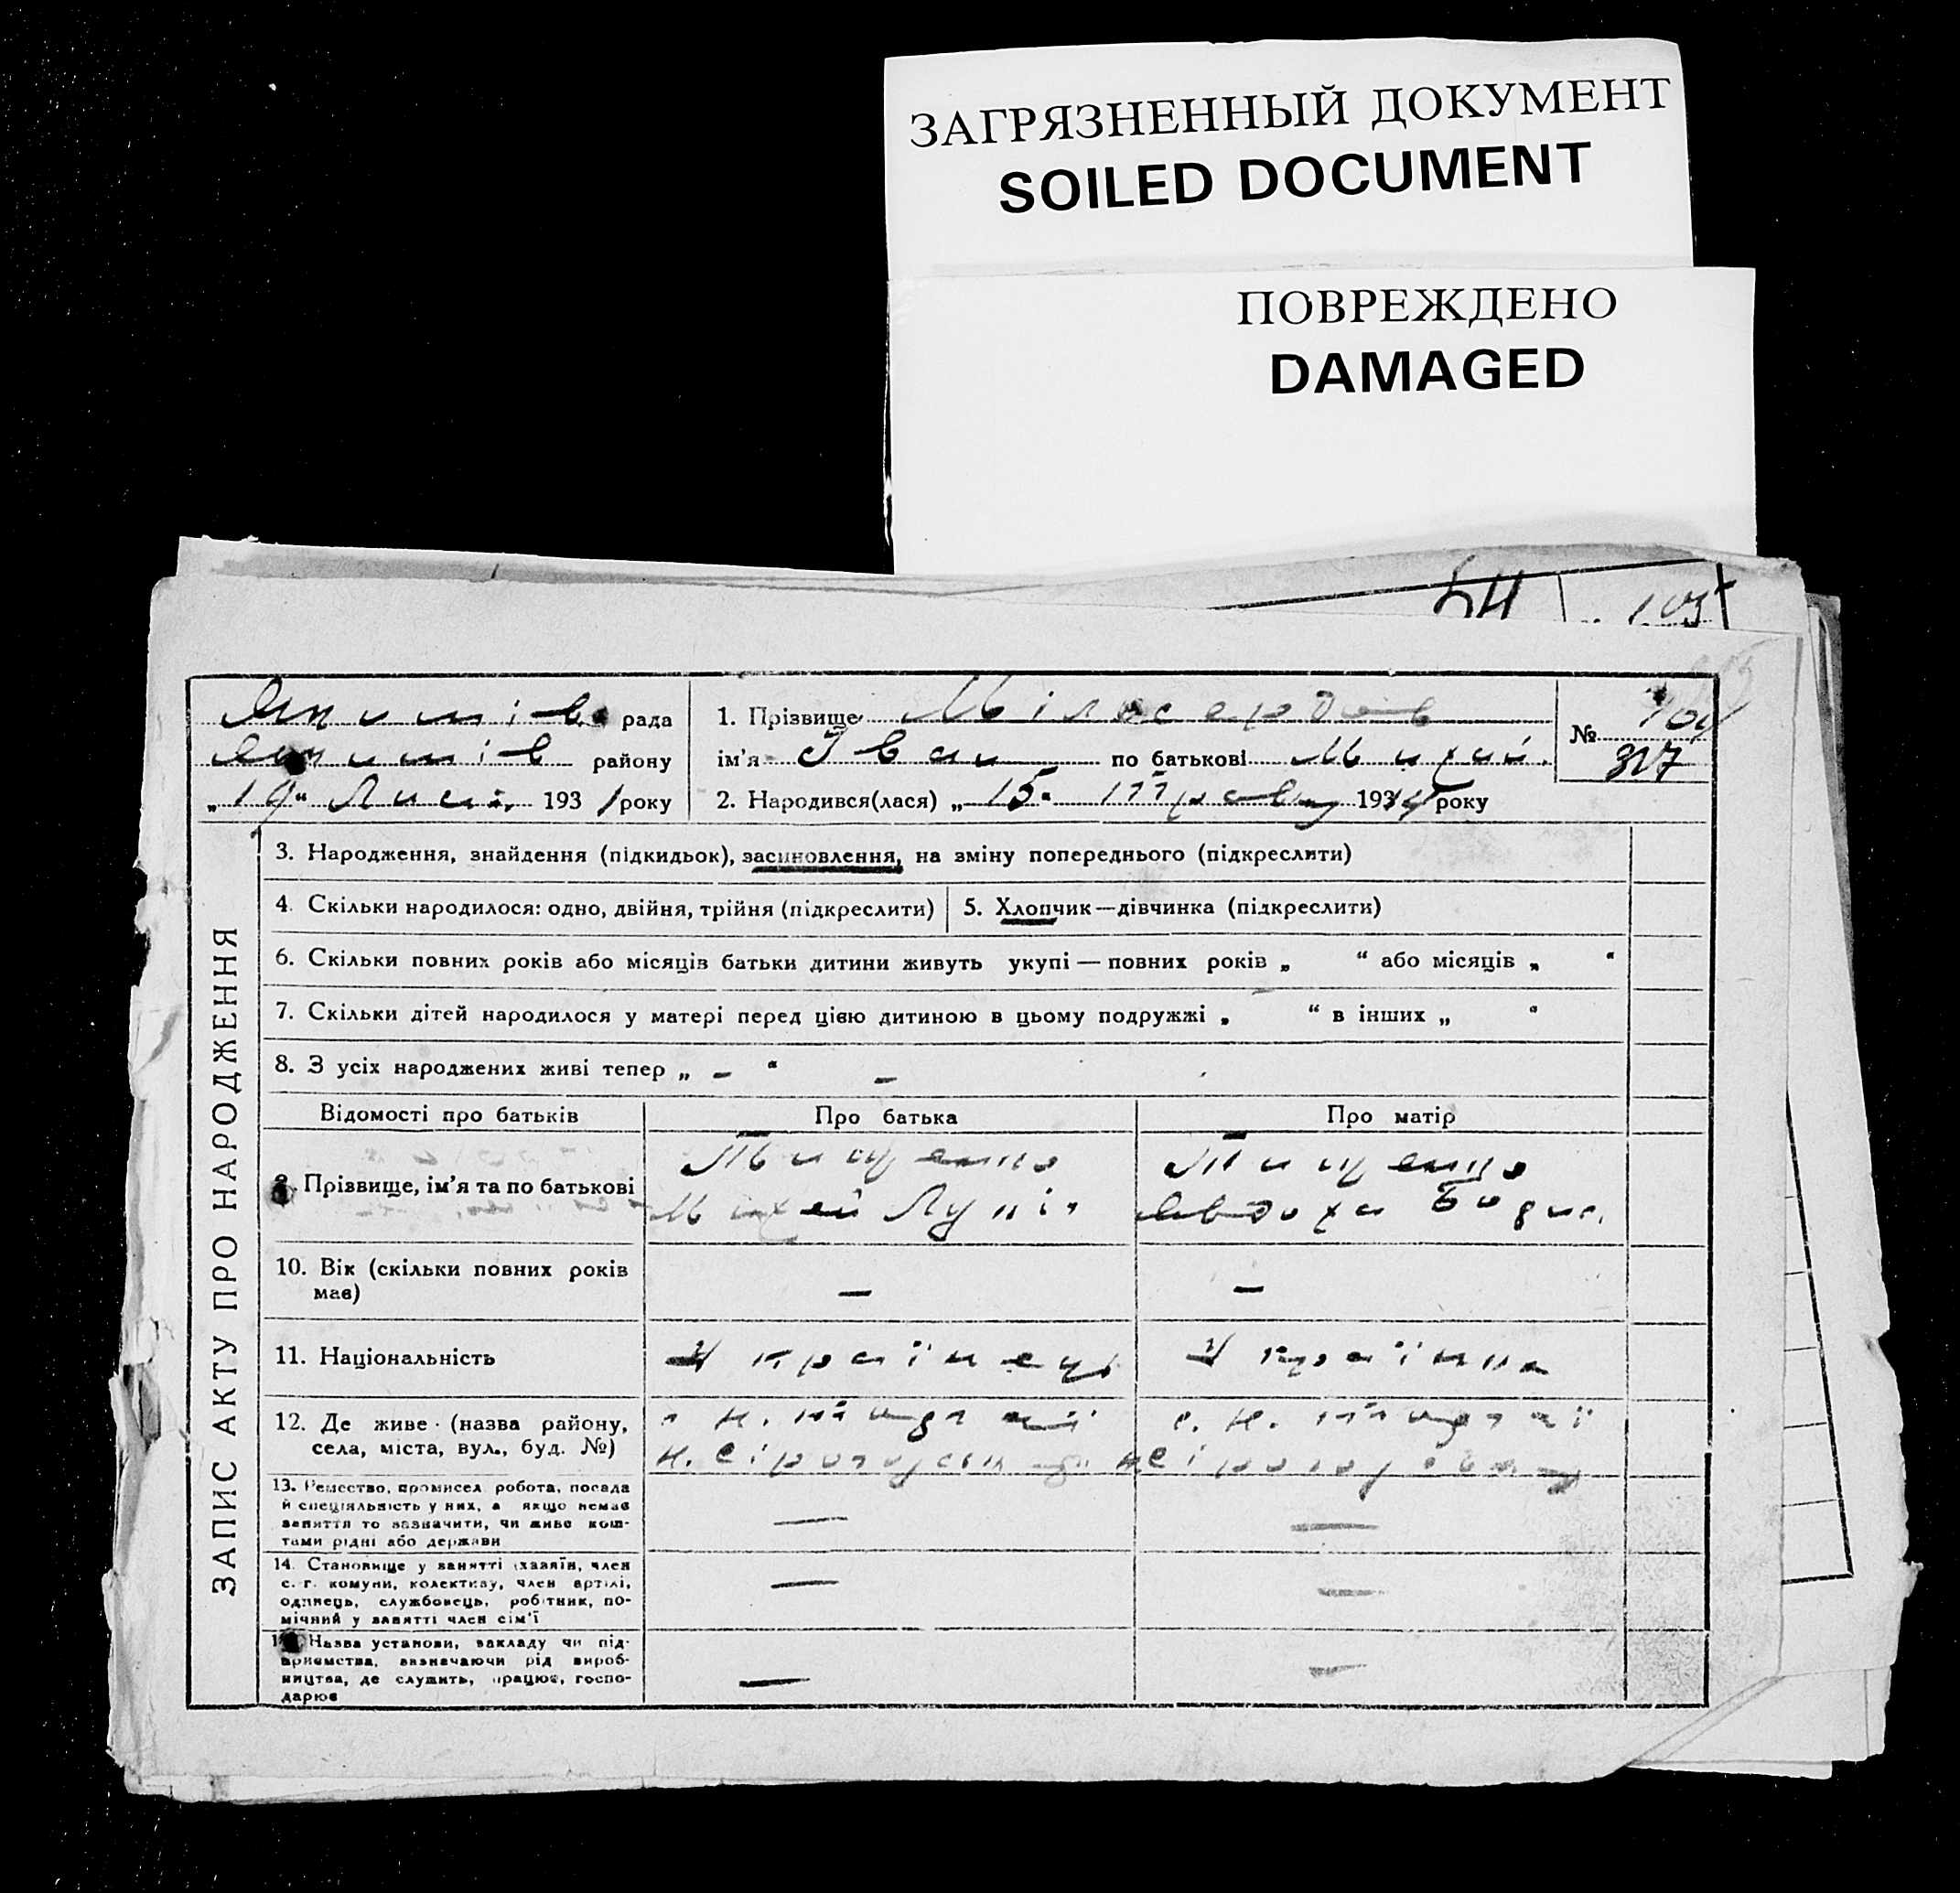 ЗАГРЯЗНЕННЫЙ ДОКУМЕНТ
SOILED DOCUMENT
ПОВРЕЖДЕНО
DAMAGED
рада
району
„19“ 1931 року
1. Прізвище Мілосердов
ім'я Іван по батькові Михай.
2. Народився(лася) „15“ Травня року
№
317
ЗАПИС АКТУ ПРО НАРОДЖЕННЯ
3. Народження, знайдення (підкидьок), засиновлення, на зміну попереднього (підкреслити)
4. Скільки народилося: одно, двійня, трійня (підкреслити)
5. Хлопчик—дівчинка (підкреслити)
6. Скільки повних років або місяців батьки дитини живуть укупі — повних років „ “ або місяців „ “
7. Скільки дітей народилося у матері перед цією дитиною в цьому подружжі „ “ в інших „ “
8. З усіх народжених живі тепер „ – “ –
Відомості про батьків
Про батька
Про матір
9. Прізвище, ім'я та по батькові
Тищенко
Михей
Тищенко
Авдоха
10. Вік (скільки повних років має)
–
–
11. Національність
Українець
Українка
12. Де живе (назва району,
села, міста, вул., буд. №)
13. Ремество, промисел робота, посада
й спеціяльність у них, а якщо немає
заняття то зазначити, чи живе кош-
тами рідні або держави
—
—
14. Становище у занятті (хазяїн, член
с.-г. комуни, колективу, член артілі,
одинець, службовець, робітник, по-
мічний у занятті член сім'ї
—
—
Назва установи, закладу чи під-
приємства, зазначаючи рід вироб-
ництва, де служить, працює, госпо-
дарює
—
—